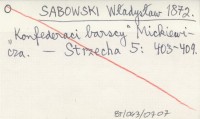 SABOWSKI Władysław 1872.
"Konfederaci barscy" Mickiewi-
cza. — Strzecha 5: 403-409.